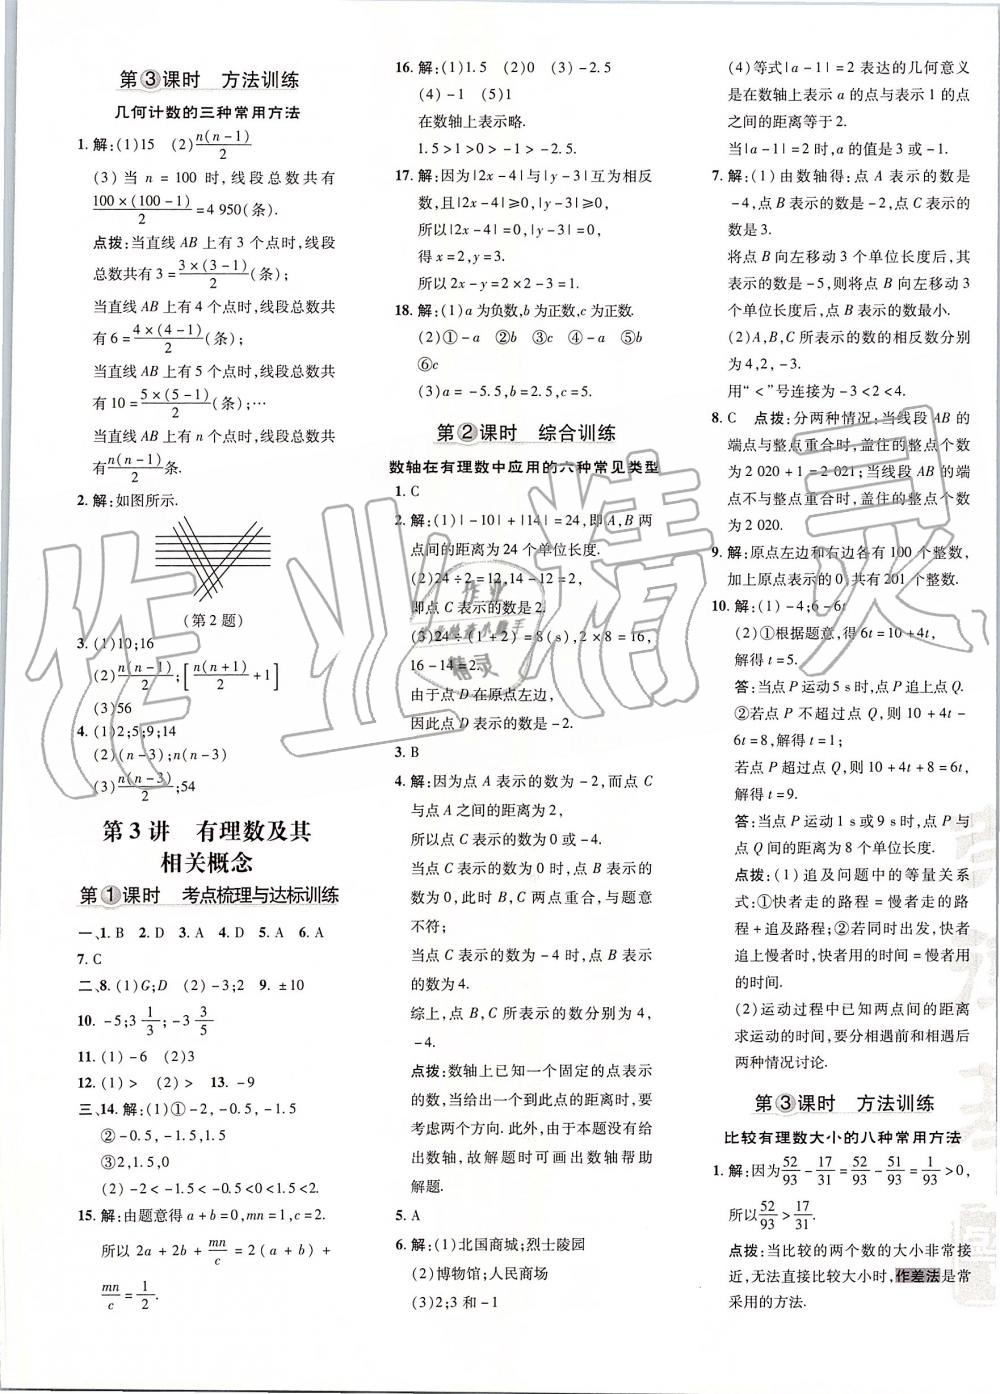 第③课时　方法训练
几何计数的三种常用方法
1. 解:(1)15　(2)n(n-1)/2
(3) 当 n = 100 时,线段总数共有
100×(100-1)/2=4 950(条).
点拨:当直线 AB 上有 3 个点时,线段
总数共有 3=3×(3-1)/2(条);
当直线 AB 上有 4 个点时,线段总数共
有 6=4×(4-1)/2(条);
当直线 AB 上有 5 个点时,线段总数共
有 10=5×(5-1)/2(条);…
当直线 AB 上有 n 个点时,线段总数共
有n(n-1)/2(条).
2. 解:如图所示.
(第 2 题)
3. (1)10;16
(2)n(n-1)/2;[n(n+1)/2+1]
(3)56
4. (1)2;5;9;14
(2)(n-3);n(n-3)
(3)n(n-3)/2;54
第 3 讲　有理数及其
相关概念
第①课时　考点梳理与达标训练
一、1. B　2. D　3. A　4. D　5. A　6. A
7. C
二、8. (1)G;D　(2)-3;2　9. ±10
10. -5;3 1/3;-3 3/5
11. (1)-6　(2)3
12. (1)>　(2)>　13. -9
三、14. 解:(1)①-2,-0.5,-1.5
②-0.5,-1.5
③2,1.5,0
(2)-2<-1.5<-0.5<0<1.5<2.
15. 解:由题意得 a+b=0,mn=1,c=2.
所以 2a+2b+mn/c=2(a+b)+
mn/c=1/2.
16. 解:(1)1.5　(2)0　(3)-2.5
(4)-1　(5)1
在数轴上表示略.
1.5>1>0>-1>-2.5.
17. 解:因为|2x-4|与|y-3|互为相反
数,且|2x-4|≥0,|y-3|≥0,
所以|2x-4|=0,|y-3|=0,
得 x=2,y=3.
所以 2x-y=2×2-3=1.
18. 解:(1)a 为负数,b 为正数,c 为正数.
(2)①-a　②b　③c　④-a　⑤b
⑥c
(3)a=-5.5,b=2.5,c=5.
第②课时　综合训练
数轴在有理数中应用的六种常见类型
1. C
2. 解:(1)|-10|+|14|=24,即 A,B 两
点间的距离为 24 个单位长度.
(2)24÷2=12,14-12=2,
即点 C 表示的数是 2.
(3)24÷(1+2)=8(s),2×8=16,
16-14=2.
由于点 D 在原点左边,
因此点 D 表示的数是-2.
3. B
4. 解:因为点 A 表示的数为-2,而点 C
与点 A 之间的距离为 2,
所以点 C 表示的数为 0 或-4.
当点 C 表示的数为 0 时,点 B 表示的
数为 0,此时点 B,C 重合,与题意
不符;
当点 C 表示的数为-4 时,点 B 表示
的数为 4.
综上,点 B,C 所表示的数分别为 4,
-4.
点拨:数轴上已知一个固定的点表示
的数,当给出一个到此点的距离时,
有两个方向. 此外,由于本题没有给
出数轴,故解题时可画出数轴帮助
解题.
5. A
6. 解:(1)北国商城;烈士陵园
(2)博物馆;人民商场
(3)2;3 和-1
(4)等式|a-1|=2 表达的几何意义
是在数轴上表示 a 的点与表示 1 的点
之间的距离等于 2.
当|a-1|=2 时,a 的值是 3 或-1.
7. 解:(1)由数轴得:点 A 表示的数是
-4,点 B 表示的数是-2,点 C 表示的
数是 3.
将点 B 向左移动 3 个单位长度后,其
表示的数是-5,则将点 B 向左移动 3
个单位长度后,点 B 表示的数最小.
(2)A,B,C 所表示的数的相反数分别
为 4,2,-3.
用“<”号连接为-3<2<4.
8. C　点拨:分两种情况:当线段 AB 的
端点与整点重合时,盖住的整点个数
为 2 020+1=2 021;当线段 AB 的端
点不与整点重合时,盖住的整点个数
为 2 020.
9. 解:原点左边和右边各有 100 个整数,
加上原点表示的 0,共有 201 个整数.
10. 解:(1)-4;6-6t
(2)①根据题意,得 6t=10+4t,
解得 t=5.
答:当点 P 运动 5 s 时,点 P 追上点 Q.
②若点 P 不超过点 Q,则 10+4t-
6t=8,解得 t=1;
若点 P 超过点 Q,则 10+4t+8=6t,
解得 t=9.
答:当点 P 运动 1 s 或 9 s 时,点 P 与
点 Q 间的距离为 8 个单位长度.
点拨:(1)追及问题中的等量关系
式:①快者走的路程=慢者走的路程
+追及路程;②若同时出发,快者
追上慢者时,快者用的时间=慢者用
的时间.
(2)运动过程中已知两点间的距离
求运动的时间,要分相遇前和相遇后
两种情况讨论.
第③课时　方法训练
比较有理数大小的八种常用方法
1. 解:因为52/93-17/31=52/93-51/93=1/93>0,
所以52/93>17/31.
点拨:当比较的两个数的大小非常接
近,无法直接比较大小时,作差法是常
采用的方法.
作业精灵